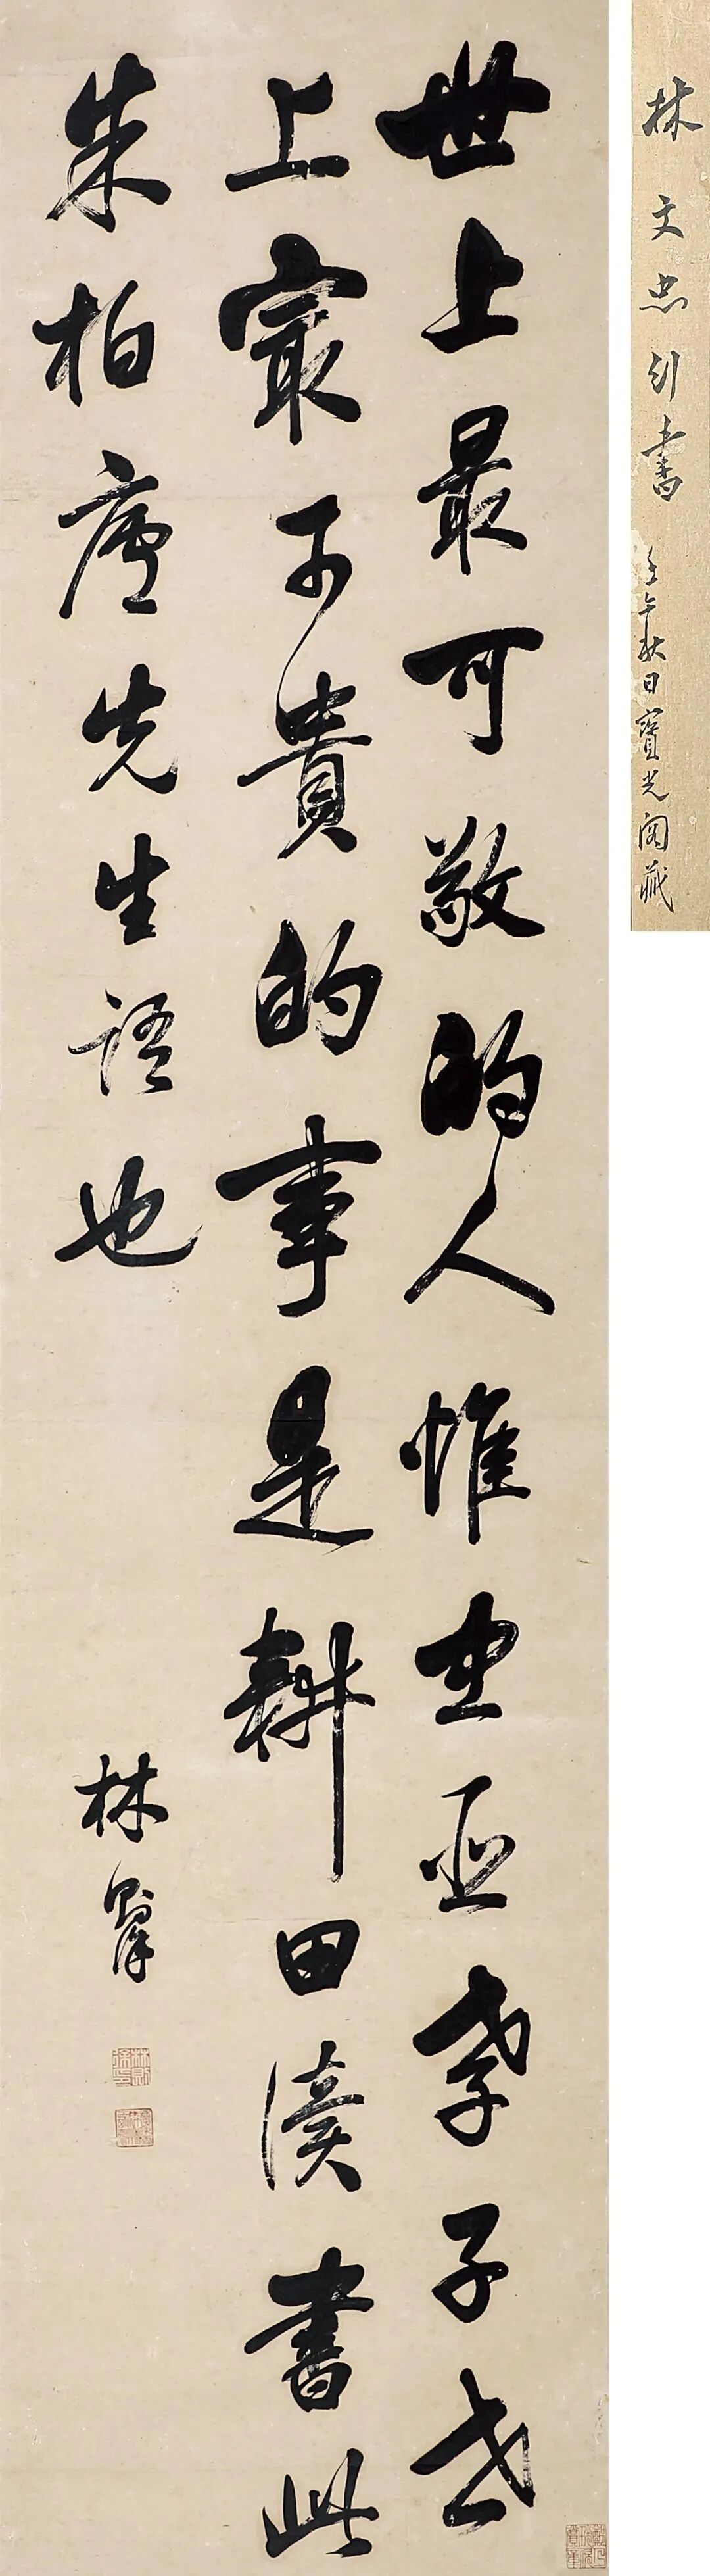 林文忠行書
壬午秋日寶光閣藏
世上最可敬的人惟忠臣孝子世
上㝡可貴的事是耕田讀書此
朱柏廬先生語也
林則徐
林則徐印